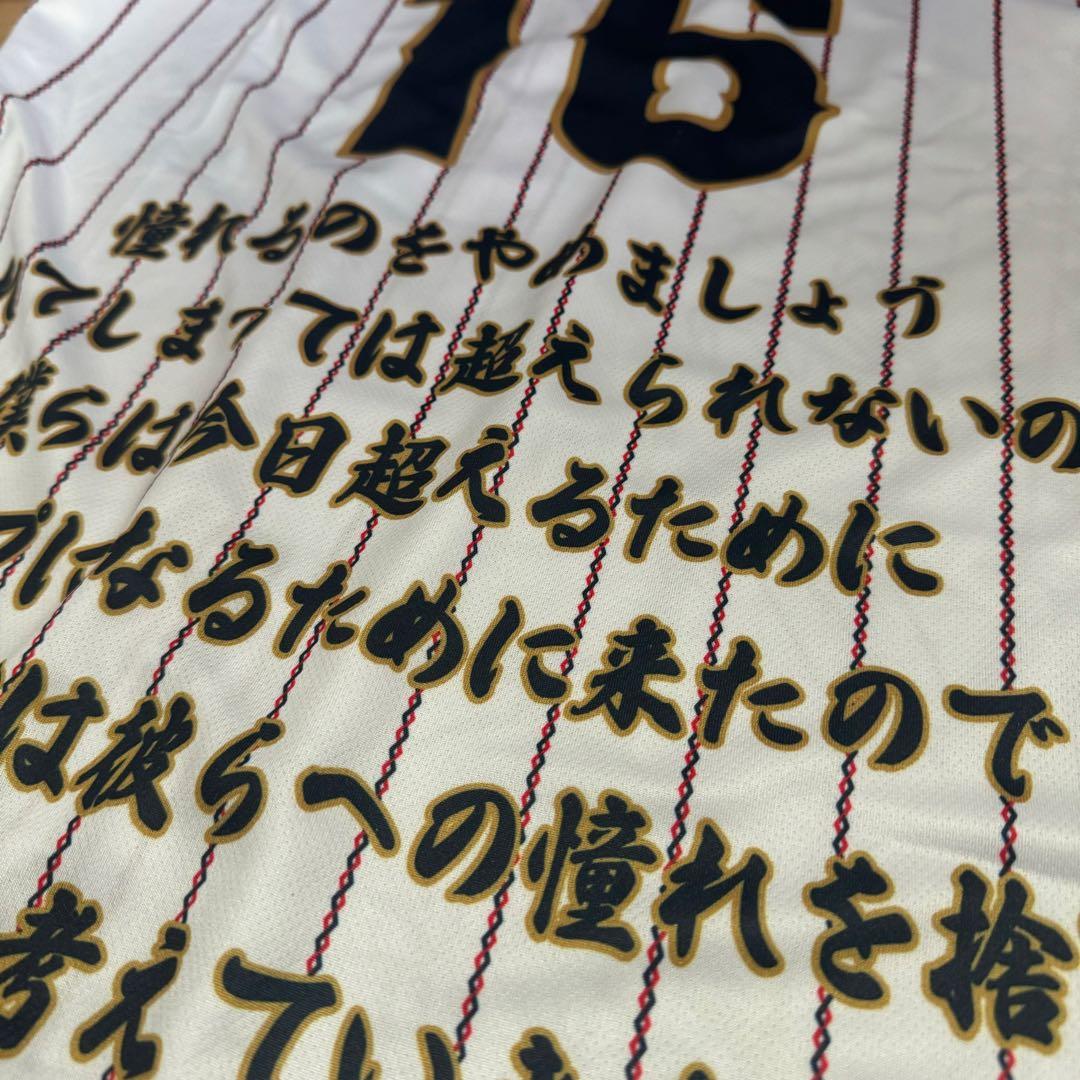 16
憧れるのをやめましょう
れてしまっては超えられないの
僕らは今日超えるために
プになるために来たので
は彼らへの憧れを捨
考えていき